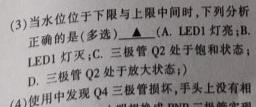 (3)当水位位于下限与上限中间时,下列分析
正确的是(多选) ▲ (A. LED1 灯亮;B.
LED1 灯灭;C. 三极管 Q2 处于饱和状态;
D. 三极管 Q2 处于放大状态;)
(4)使用中发现 Q4 三极管损坏,手头上没有相